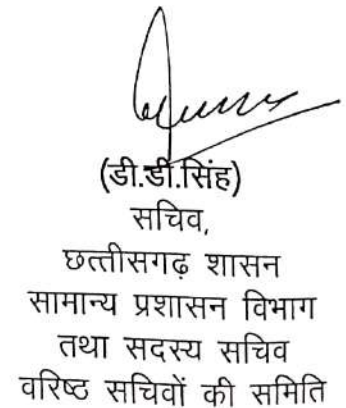 (डी.डी.सिंह)
सचिव,
छत्तीसगढ़ शासन
सामान्य प्रशासन विभाग
तथा सदस्य सचिव
वरिष्ठ सचिवों की समिति